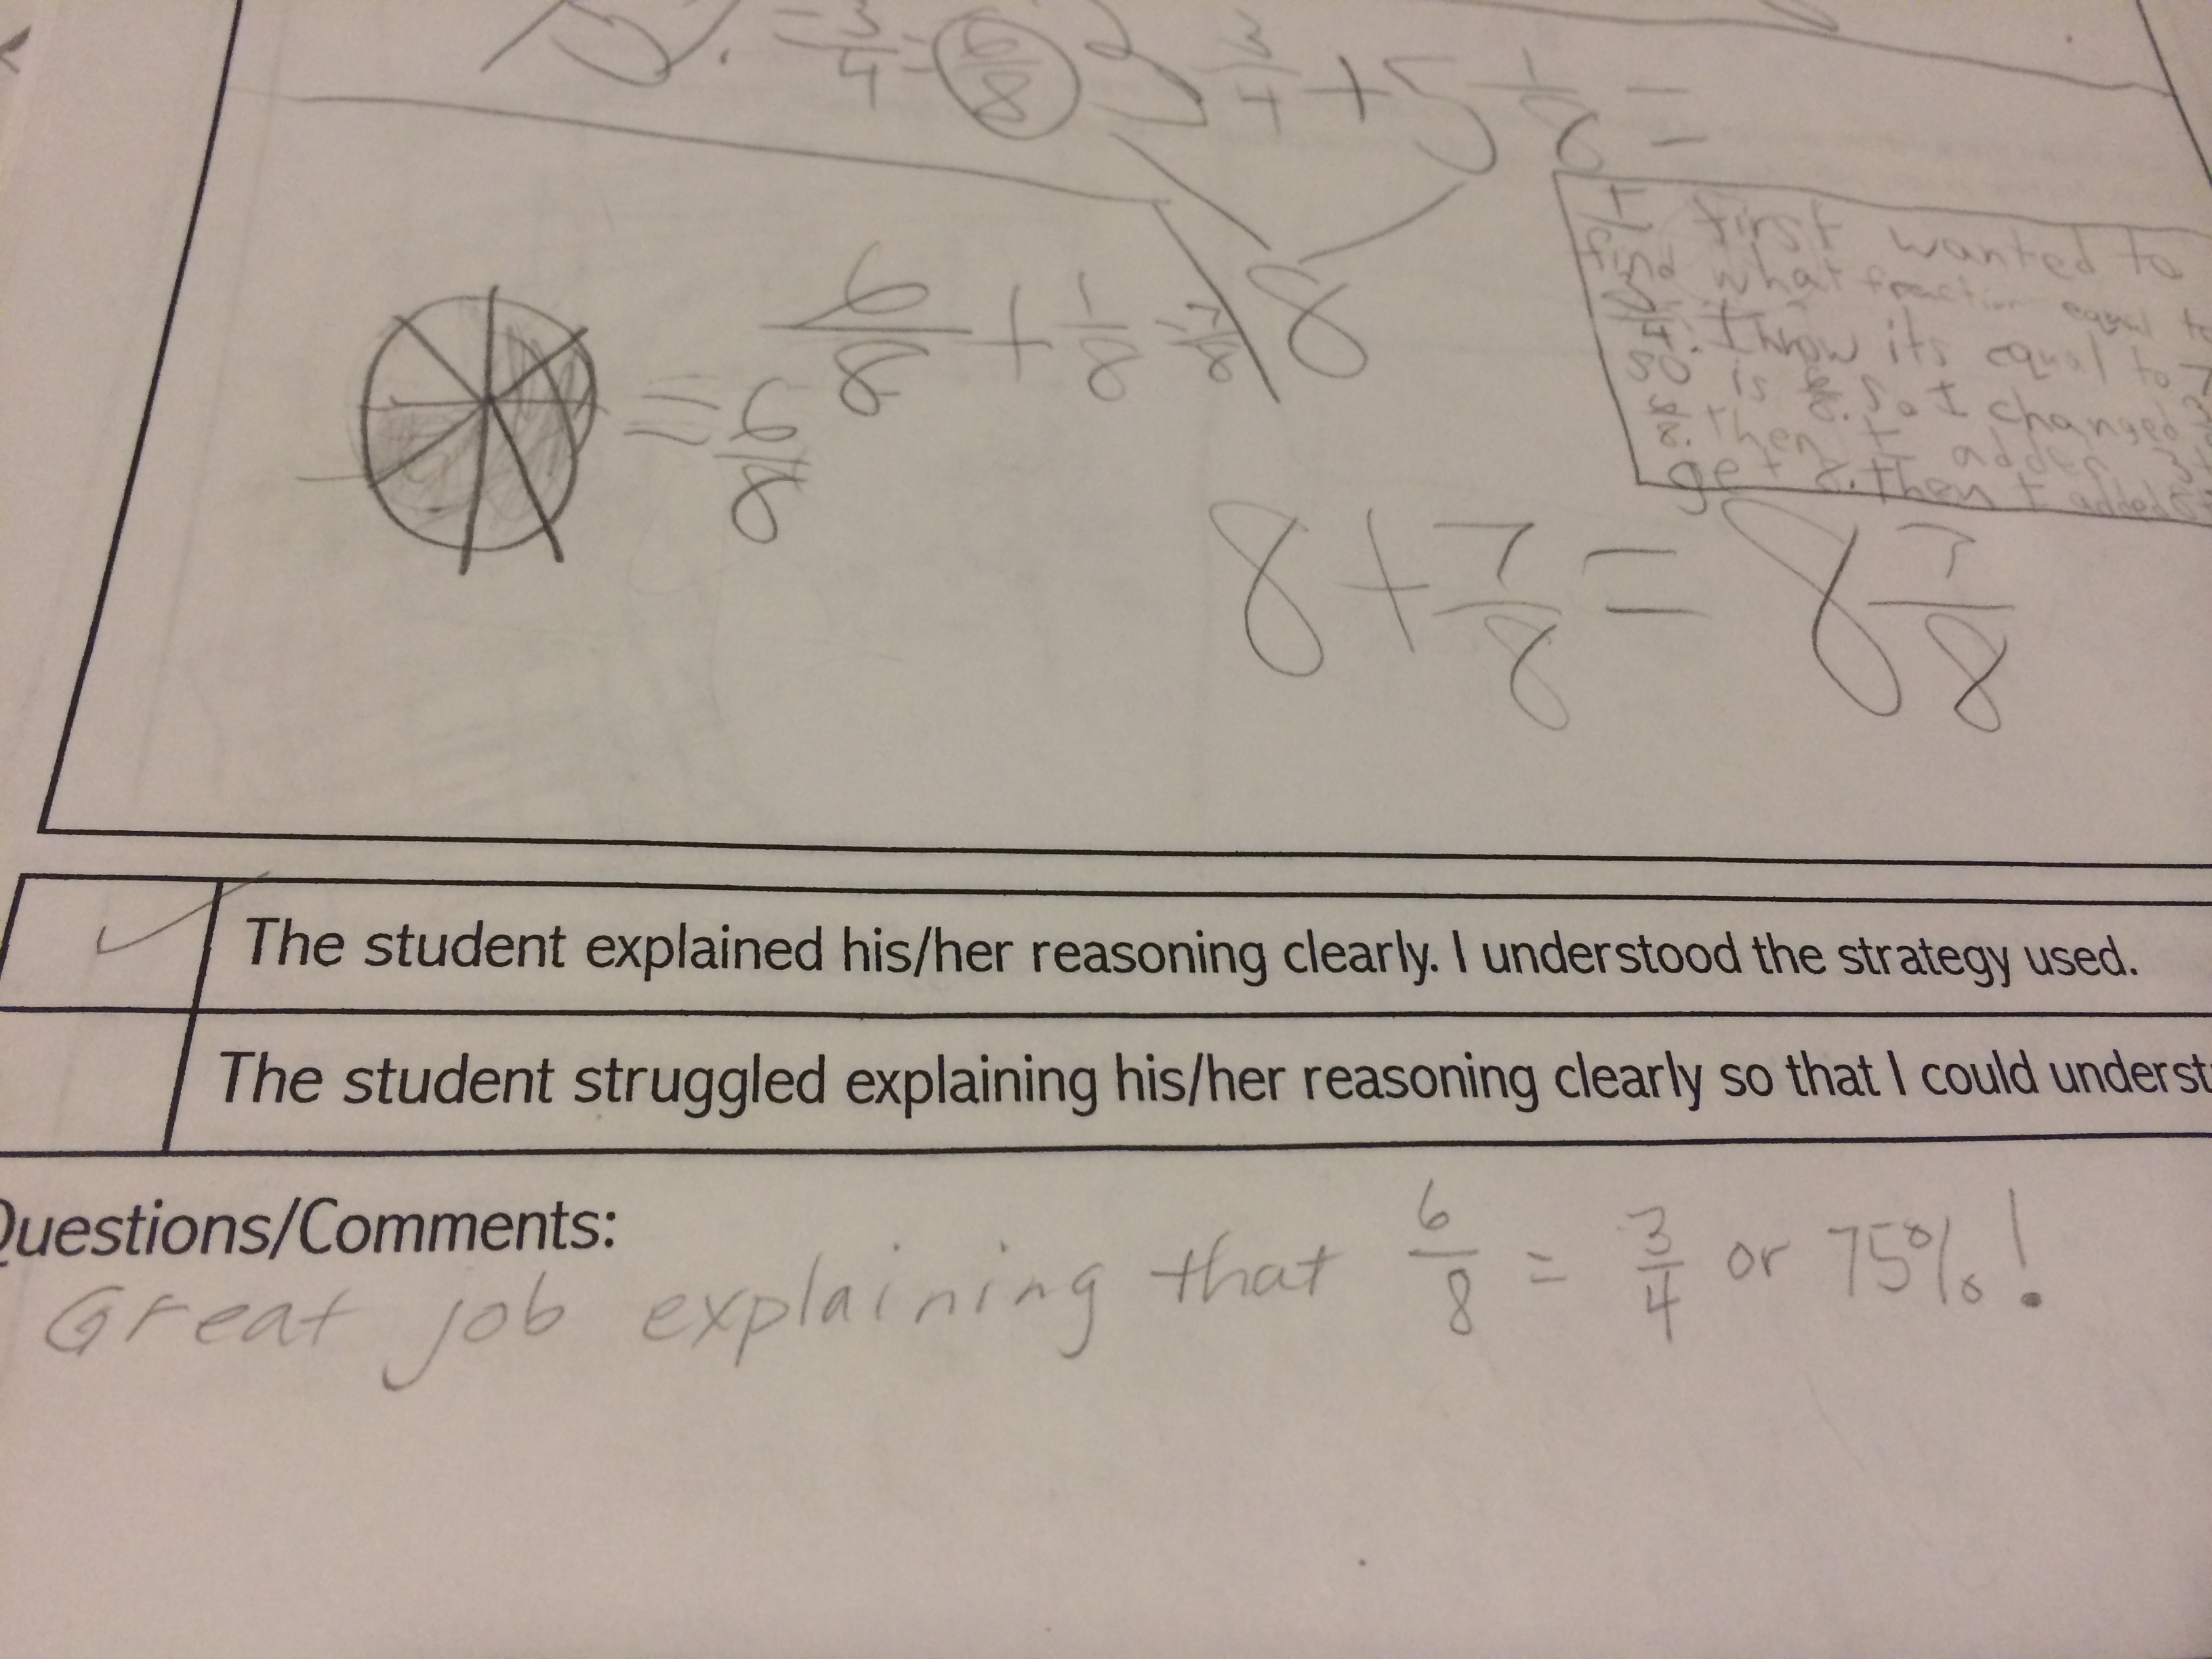 = 3/4 = 6/8 3 3/4 + 5 1/8 =
8
6/8 + 1/8 = 7/8
= 6/8
I first wanted to
find what fraction equal to
3/4. I know its equal to 7
so is 8. So I changed 3
6/8. Then I added 3
get 8. Then I added
8 + 7/8 = 8 7/8
The student explained his/her reasoning clearly. I understood the strategy used.
The student struggled explaining his/her reasoning clearly so that I could underst
Questions/Comments:
Great job explaining that 6/8 = 3/4 or 75%!